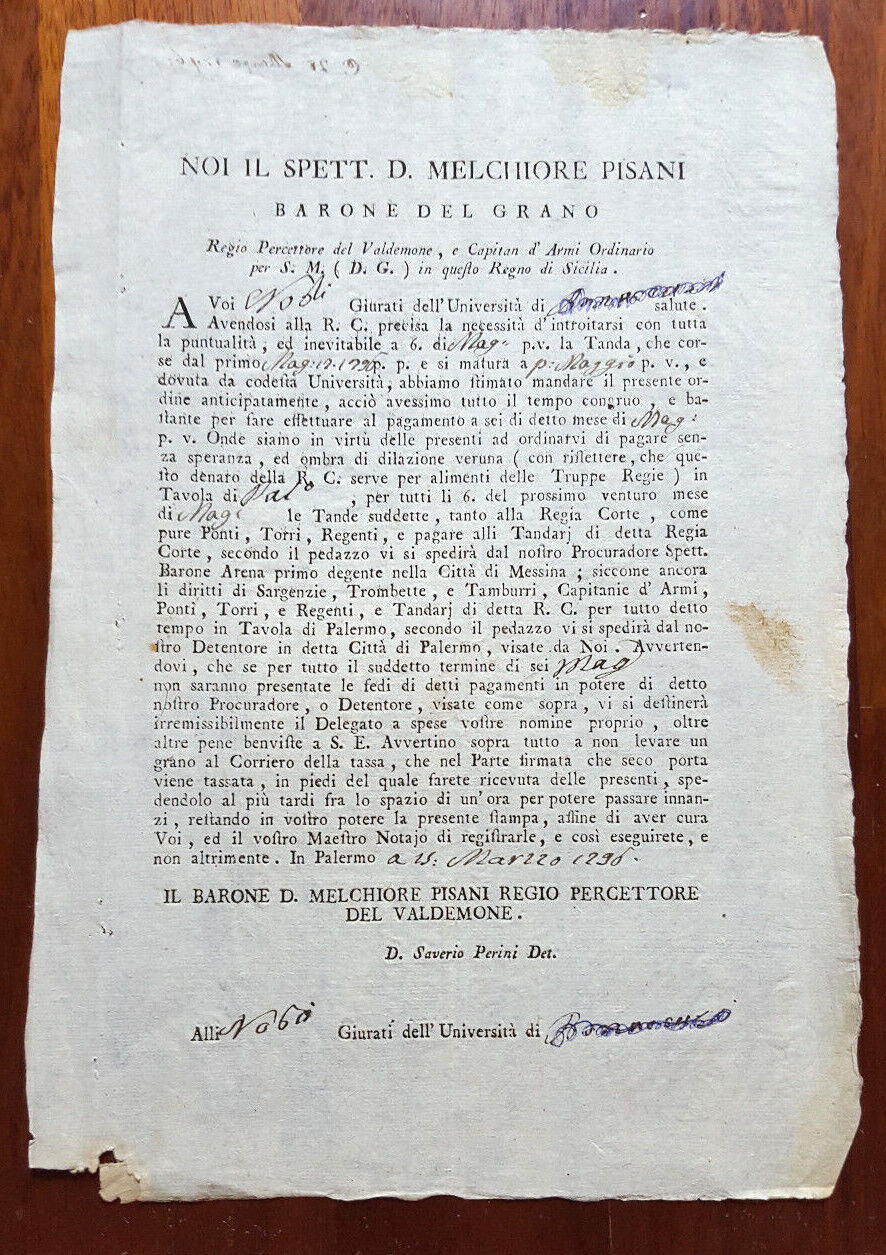 NOI IL SPETT. D. MELCHIORE PISANI
BARONE DEL GRANO
Regio Percettore del Valdemone, e Capitan d' Armi Ordinario
per S. M. ( D. G. ) in questo Regno di Sicilia.
A Voi Nobli Giurati dell'Università di salute.
Avendosi alla R. C. precisa la necessità d'introitarsi con tutta
la puntualità, ed inevitabile a 6. di Mag: p.v. la Tanda, che cor-
se dal primo p. p. e si matura a p: Maggio p. v., e
dovuta da codesta Università, abbiamo stimato mandare il presente or-
dine anticipatamente, acciò avessimo tutto il tempo congruo, e ba-
stante per fare effettuare al pagamento a sei di detto mese di Mag:
p. v. Onde siamo in virtù delle presenti ad ordinarvi di pagare sen-
za speranza, ed ombra di dilazione veruna ( con riflettere, che que-
sto denaro della R. C. serve per alimenti delle Truppe Regie ) in
Tavola di Palo, per tutti li 6. del prossimo venturo mese
di Mag: le Tande suddette, tanto alla Regia Corte, come
pure Ponti, Torri, Regenti, e pagare alli Tandarj di detta Regia
Corte, secondo il pedazzo vi si spedirà dal nostro Procuradore Spett.
Barone Arena primo degente nella Città di Messina; siccome ancora
li diritti di Sargenzie, Trombette, e Tamburri, Capitanie d' Armi,
Ponti, Torri, e Regenti, e Tandarj di detta R. C. per tutto detto
tempo in Tavola di Palermo, secondo il pedazzo vi si spedirà dal no-
stro Detentore in detta Città di Palermo, visate da Noi. Avverten-
dovi, che se per tutto il suddetto termine di sei Mag
non saranno presentate le fedi di detti pagamenti in potere di detto
nostro Procuradore, o Detentore, visate come sopra, vi si destinerà
irremissibilmente il Delegato a spese vostre nomine proprio, oltre
altre pene benviste a S. E. Avvertino sopra tutto a non levare un
grano al Corriero della tassa, che nel Parte firmata che seco porta
viene tassata, in piedi del quale farete ricevuta delle presenti, spe-
dendolo al più tardi fra lo spazio di un'ora per potere passare innan-
zi, restando in vostro potere la presente stampa, affine di aver cura
Voi, ed il vostro Maestro Notajo di registrarle, e così eseguirete, e
non altrimente. In Palermo a Marzzo 1796.
IL BARONE D. MELCHIORE PISANI REGIO PERCETTORE
DEL VALDEMONE.
D. Saverio Perini Det.
Alli Nobli Giurati dell' Università di